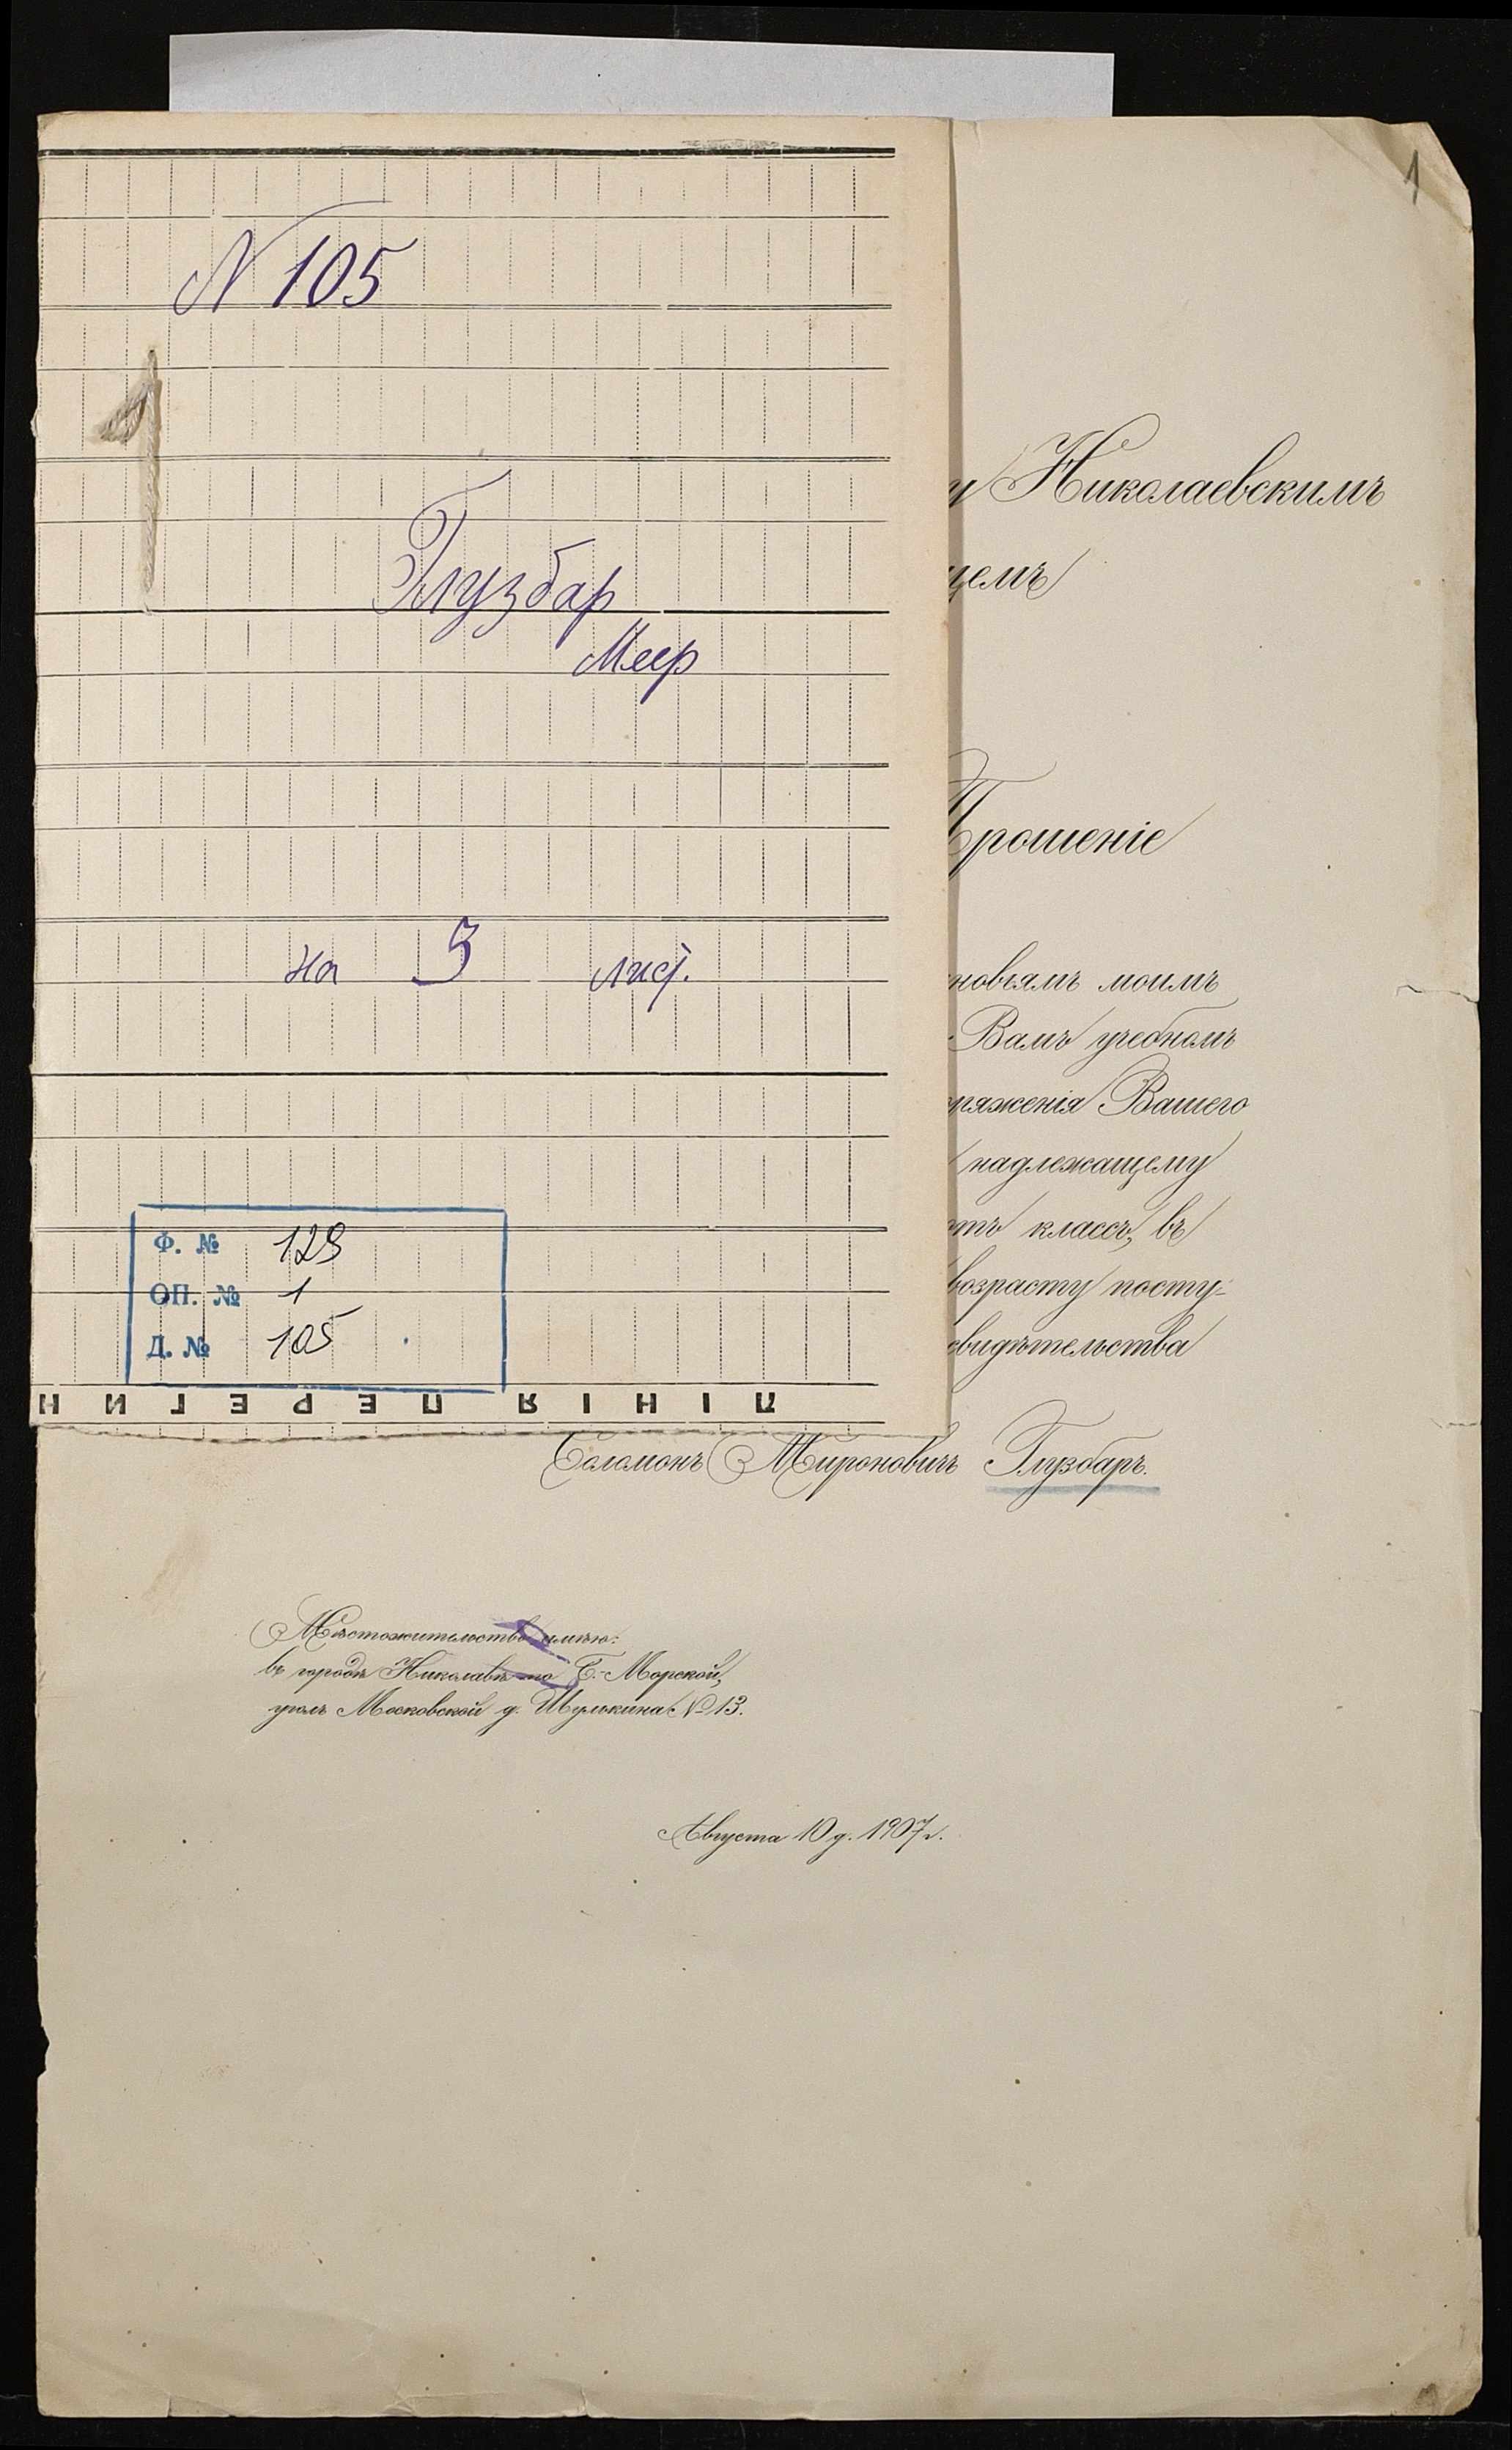 1
N 105
Глузбар
Меер
на 5 лист.
Ф. № 129
ОП. № 1
Д. № 105
ЛІНІЯ ПЕРЕГИН
у Николаевскимъ
щемъ
Прошеніе
новьямъ моимъ
Вамъ учебномъ
ряженія Вашего
надлежащему
отъ классъ, въ
возрасту посту-
свидѣтельства
Соломонъ Мироновичъ Глузбаръ.
Мѣстожительство имѣю:
въ городѣ Николаевѣ по Б.-Морской,
уголъ Московской д. Шулькина № 13.
Августа 10 д. 1907 г.